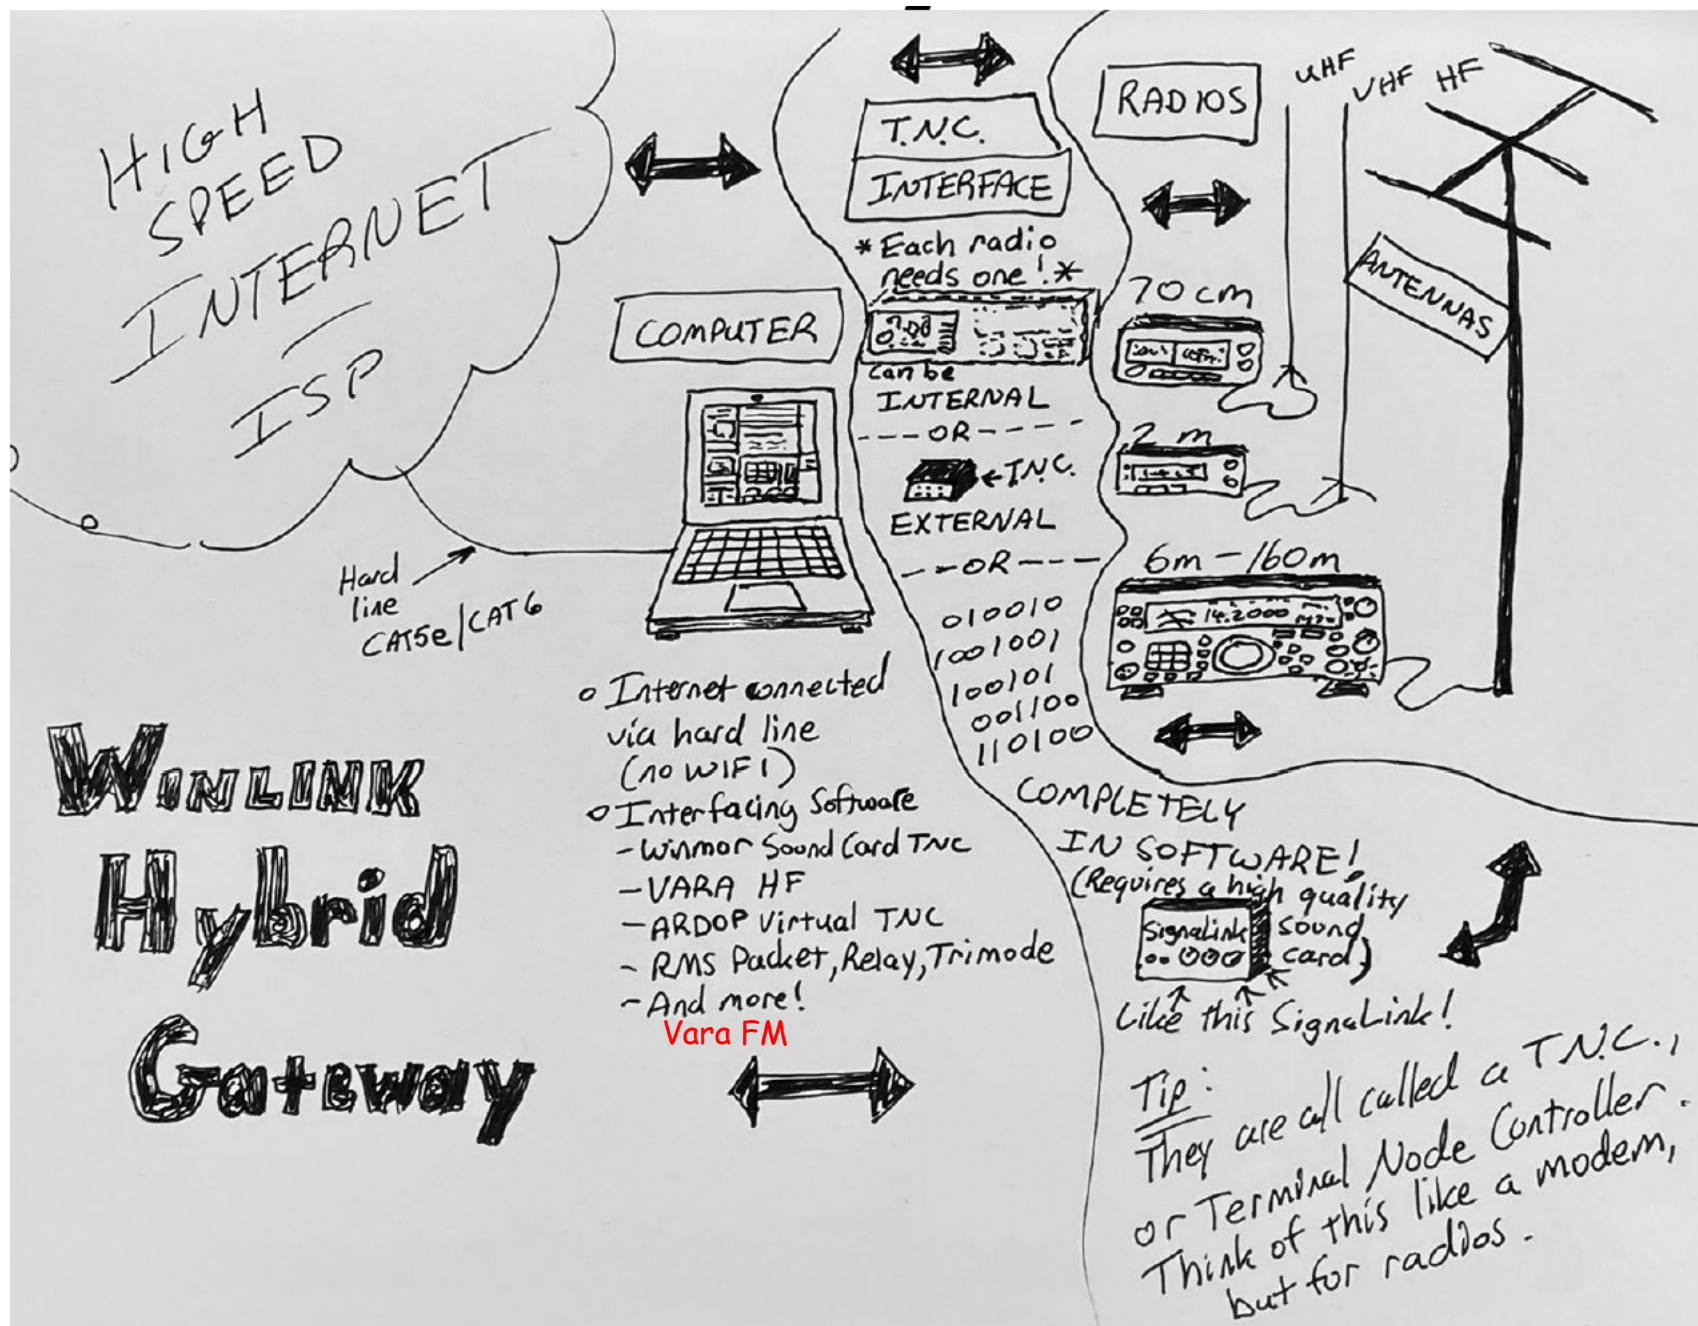 HIGH
SPEED
INTERNET
ISP
Hard
line
CAT5e/CAT6
WINLINK
Hybrid
Gateway
COMPUTER
o Internet connected
via hard line
(no WIFI)
o Interfacing Software
- Winmor Sound Card TNC
- VARA HF
- ARDOP Virtual TNC
- RMS Packet, Relay, Trimode
- And more!
Vara FM
T.N.C.
INTERFACE
* Each radio
needs one! *
can be
INTERNAL
--- OR ----
← T.N.C.
EXTERNAL
-- OR ---
010010
1001001
100101
001100
110100
COMPLETELY
IN SOFTWARE!
(Requires a high quality
sound
card)
SignaLink
Like this SignaLink!
Tip:
They are all called a T.N.C.,
or Terminal Node Controller.
Think of this like a modem,
but for radios.
RADIOS
UHF
VHF
HF
ANTENNAS
70cm
2 m
6m - 160m
14.2000